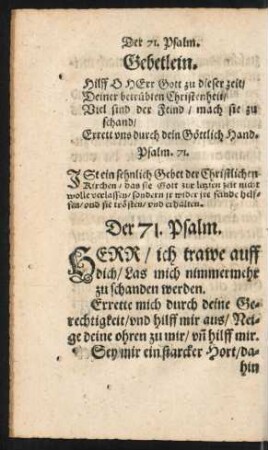 Der 71. Psalm.
Gebetlein.
Hilff O HErr Gott zu dieser zeit/
Deiner betrübten Christenheit/
Viel sind der Feind / mach sie zu
schand/
Errett vns durch dein Göttlich Hand.
Psalm. 71.
ISt ein sehnlich Gebet der Christlichen
Kirchen/ das sie Gott zur letzten zeit nicht
wolle verlassen/ sondern jr wider jre feinde helf-
fen/ vnd sie trösten/ vnd erhalten.
Der 71. Psalm.
HERR/ ich trawe auff
dich/ Las mich nimmermehr
zu schanden werden.
Errette mich durch deine Ge-
rechtigkeit/ vnd hilff mir aus/ Nei-
ge deine ohren zu mir/ vñ hilff mir.
Sey mir ein starcker Hort/ da-
hin